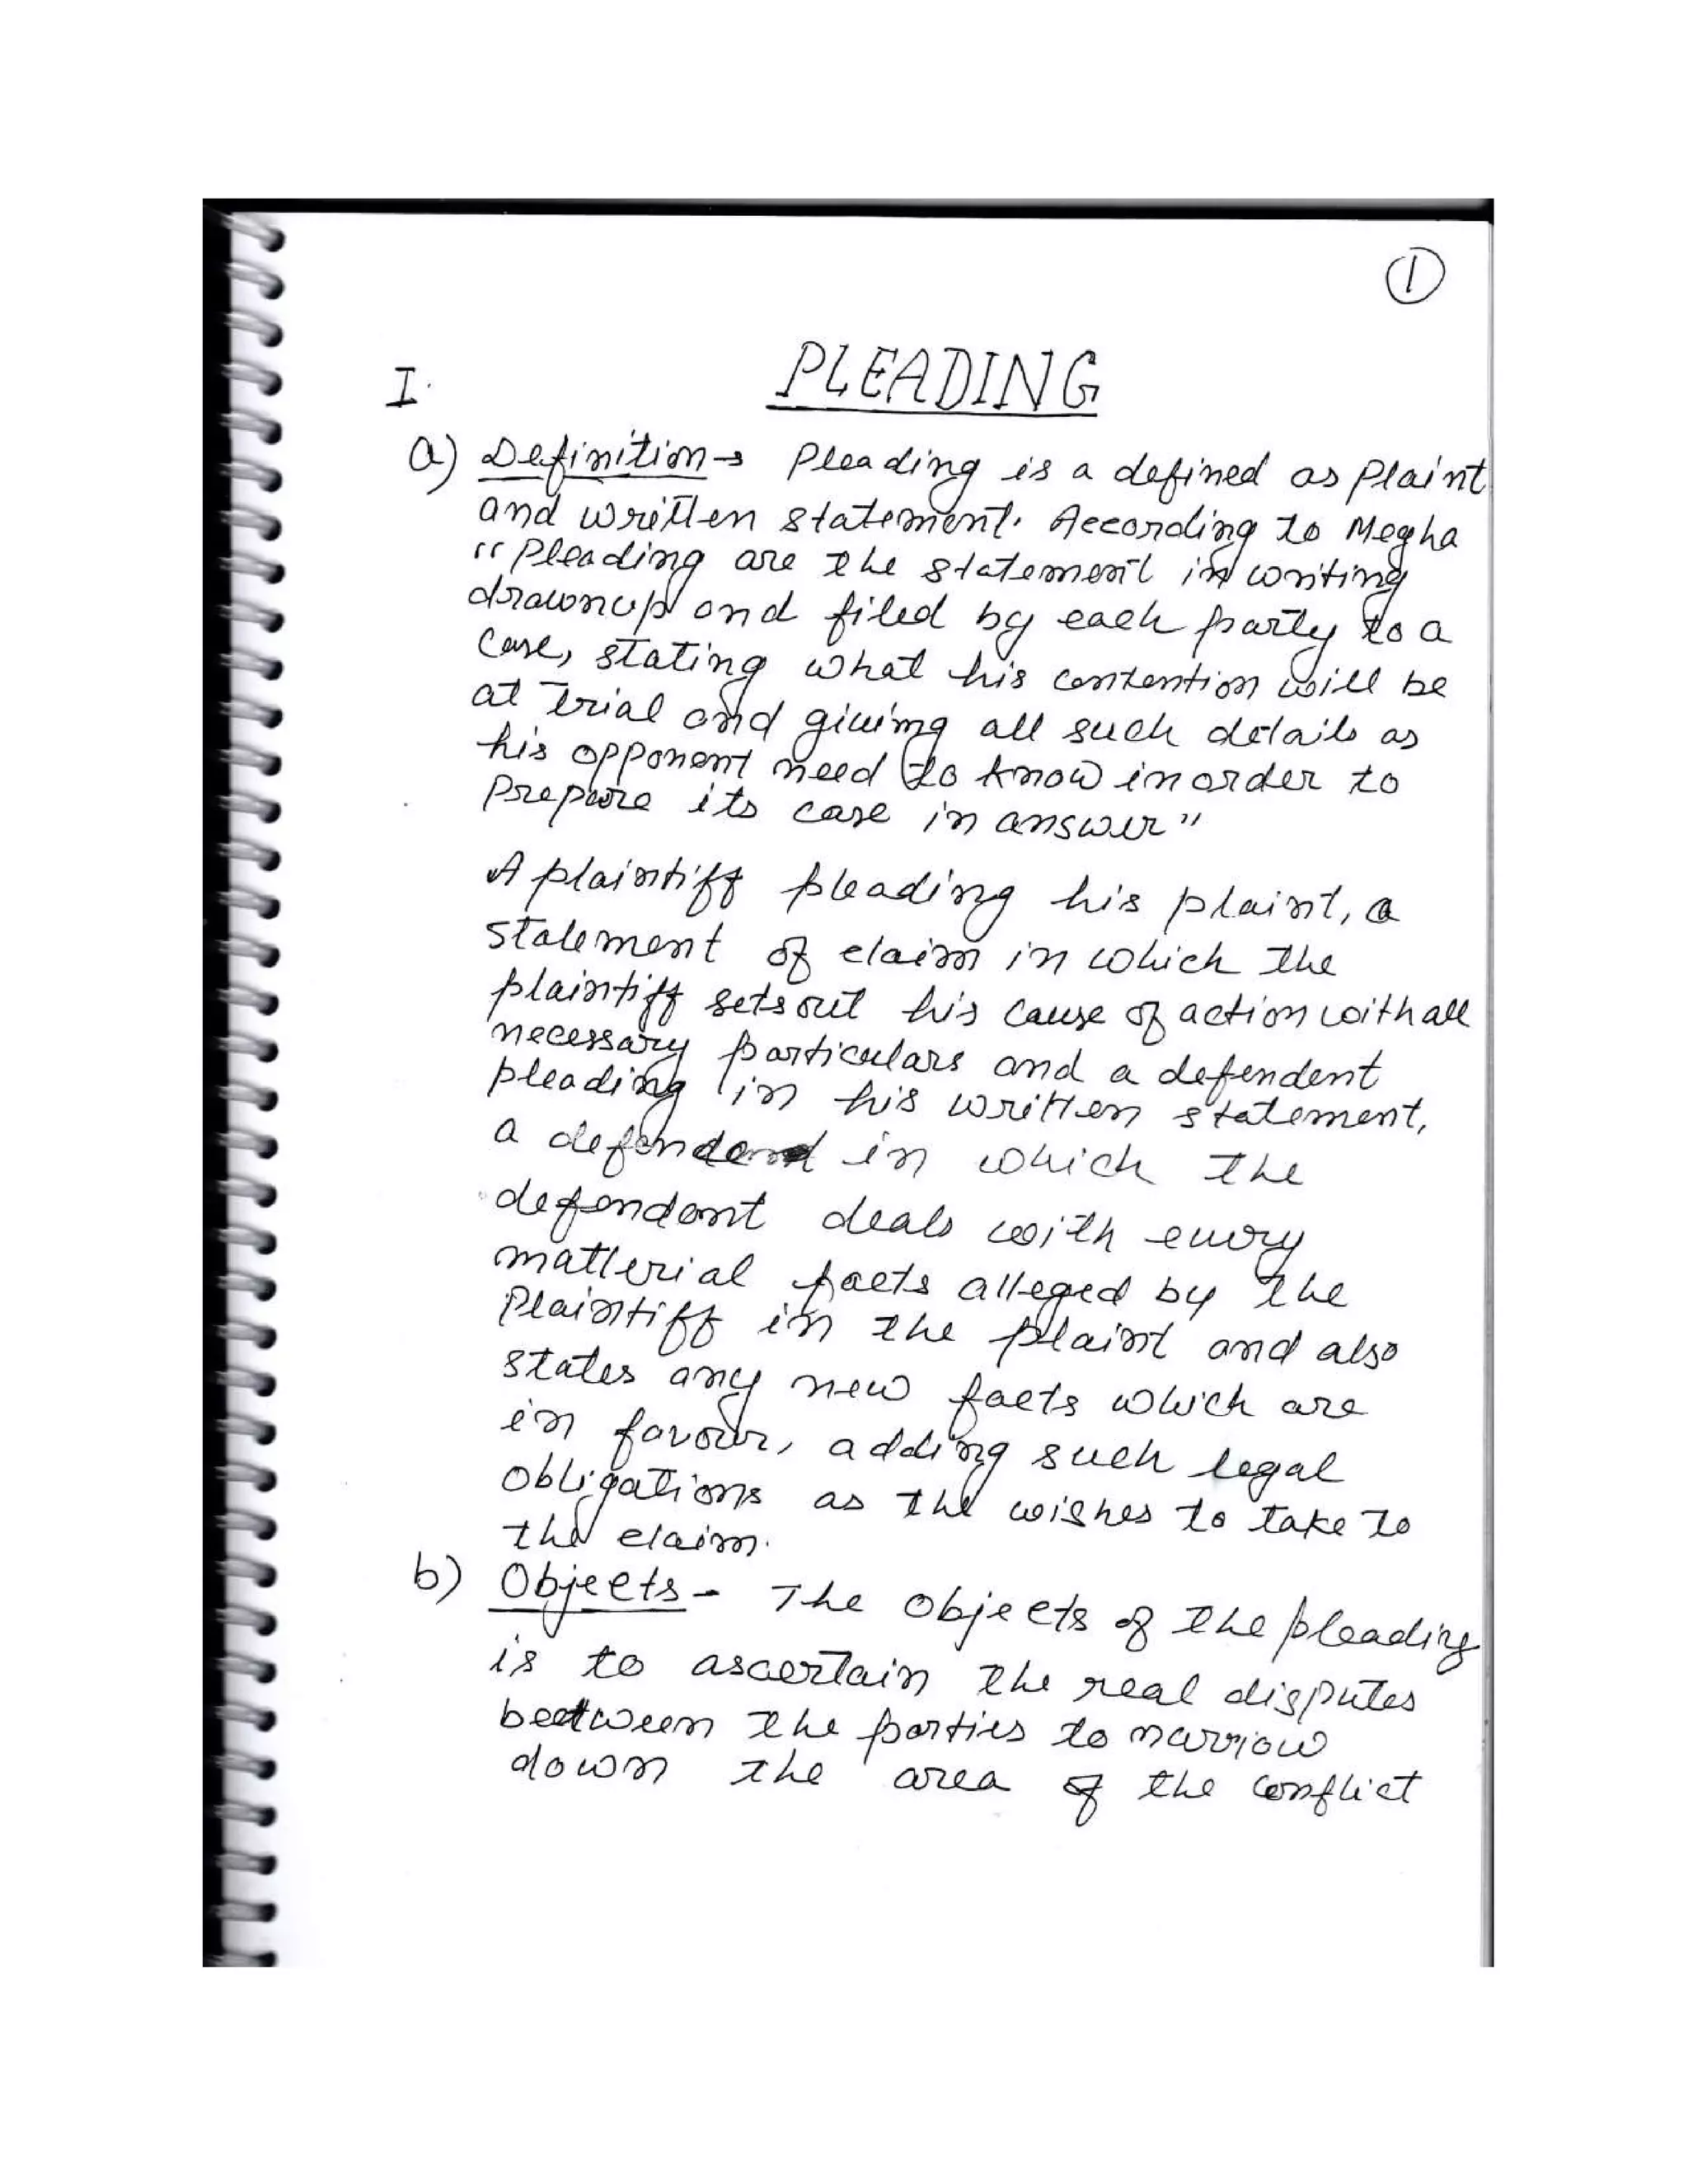 1
I. PLEADING
a) Definition→ Pleading is a defined as Plaint
and written statement. According to Mogha
"Pleading are the statement in writing
drawnup and filed by each party to a
case, stating what his contention will be
at trial and giving all such details as
his opponent need to know in order to
prepare its case in answer"
A plaintiff pleading his plaint, a
statement of claim in which the
plaintiff sets out his cause of action with all
necessary particulars and a defendent
pleading in his written statement,
a in which the
defendant deals with every
matterial facts alleged by the
Plaintiff in the plaint and also
states any new facts which are
in favour, adding such legal
obligations as the wishes to take to
the claim.
b) Objects - The objects of the pleading
is to ascertain the real disputes
between the parties to narriow
down the area of the conflict